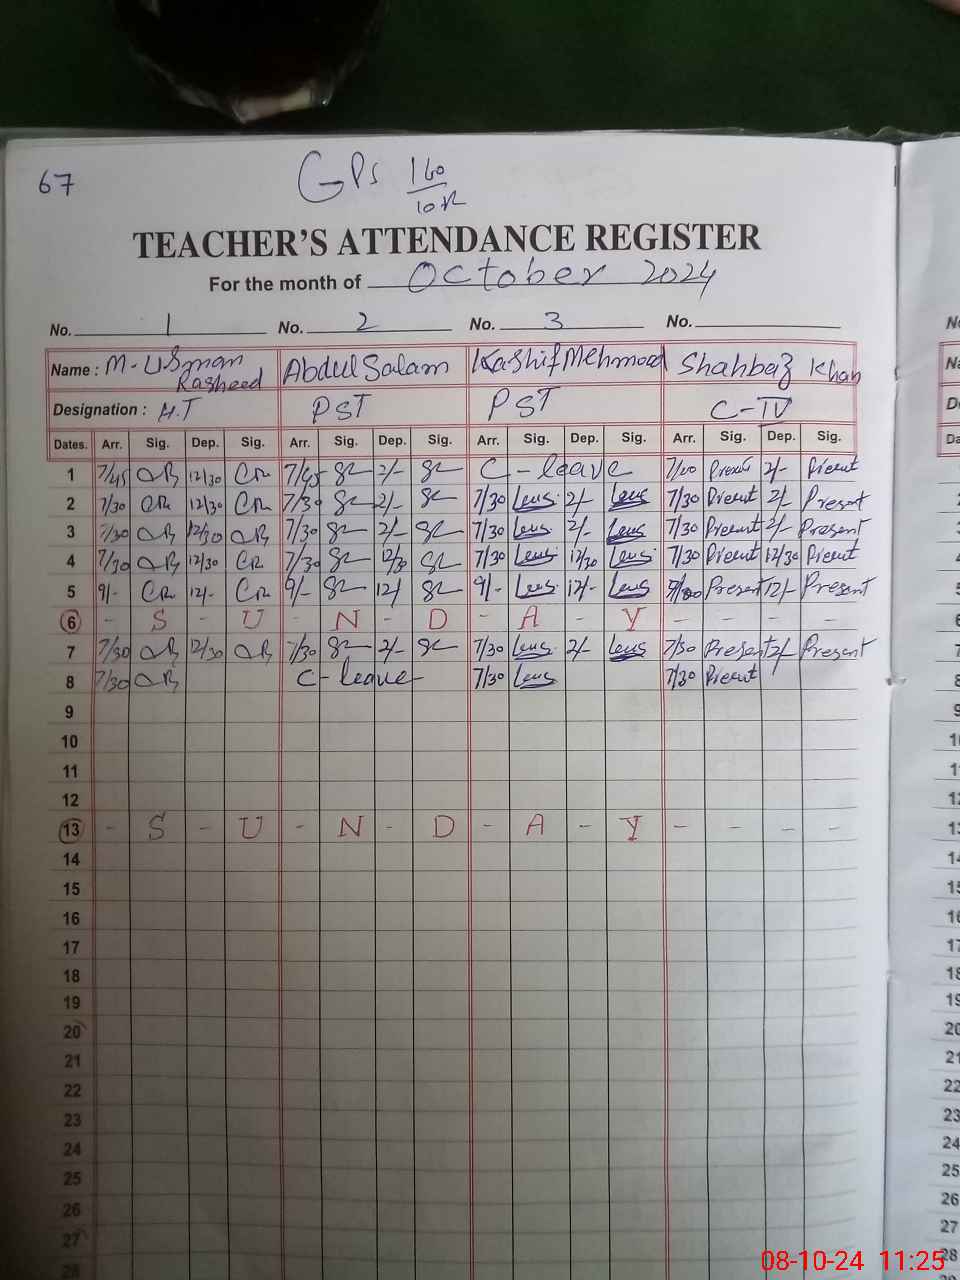 67 GPS 160/10R
TEACHER'S ATTENDANCE REGISTER
For the month of October 2024
No. 1 No. 2 No. 3 No.
Name : M-Usman Rasheed Abdul Salam Kashif Mehmood Shahbaz Khan
Designation : H.T PST PST C-IV
Dates. Arr. Sig. Dep. Sig. Arr. Sig. Dep. Sig. Arr. Sig. Dep. Sig. Arr. Sig. Dep. Sig.
1 7/45 12/30 7/45 2/- C-leave 2/-
2 7/30 12/30 7/30 2/- 7/30 2/- 7/30 2/- Present
3 7/30 12/30 7/30 2/- 7/30 2/- 7/30 Present 2/- Present
4 7/30 12/30 7/30 12/30 7/30 12/30 7/30 Present 12/30 Present
5 9/- 12/- 9/- 12/ 9/- 12/- Present 12/- Present
6 - S - U - N - D - A - Y - - - -
7 7/30 12/30 7/30 2/- 7/30 2/- 7/30 Present 2/- Present
8 7/30 C-leave 7/30 7/30 Present
9
10
11
12
13 - S - U - N - D - A - Y - - - -
14
15
16
17
18
19
20
21
22
23
24
25
26
27
28
08-10-24 11:25